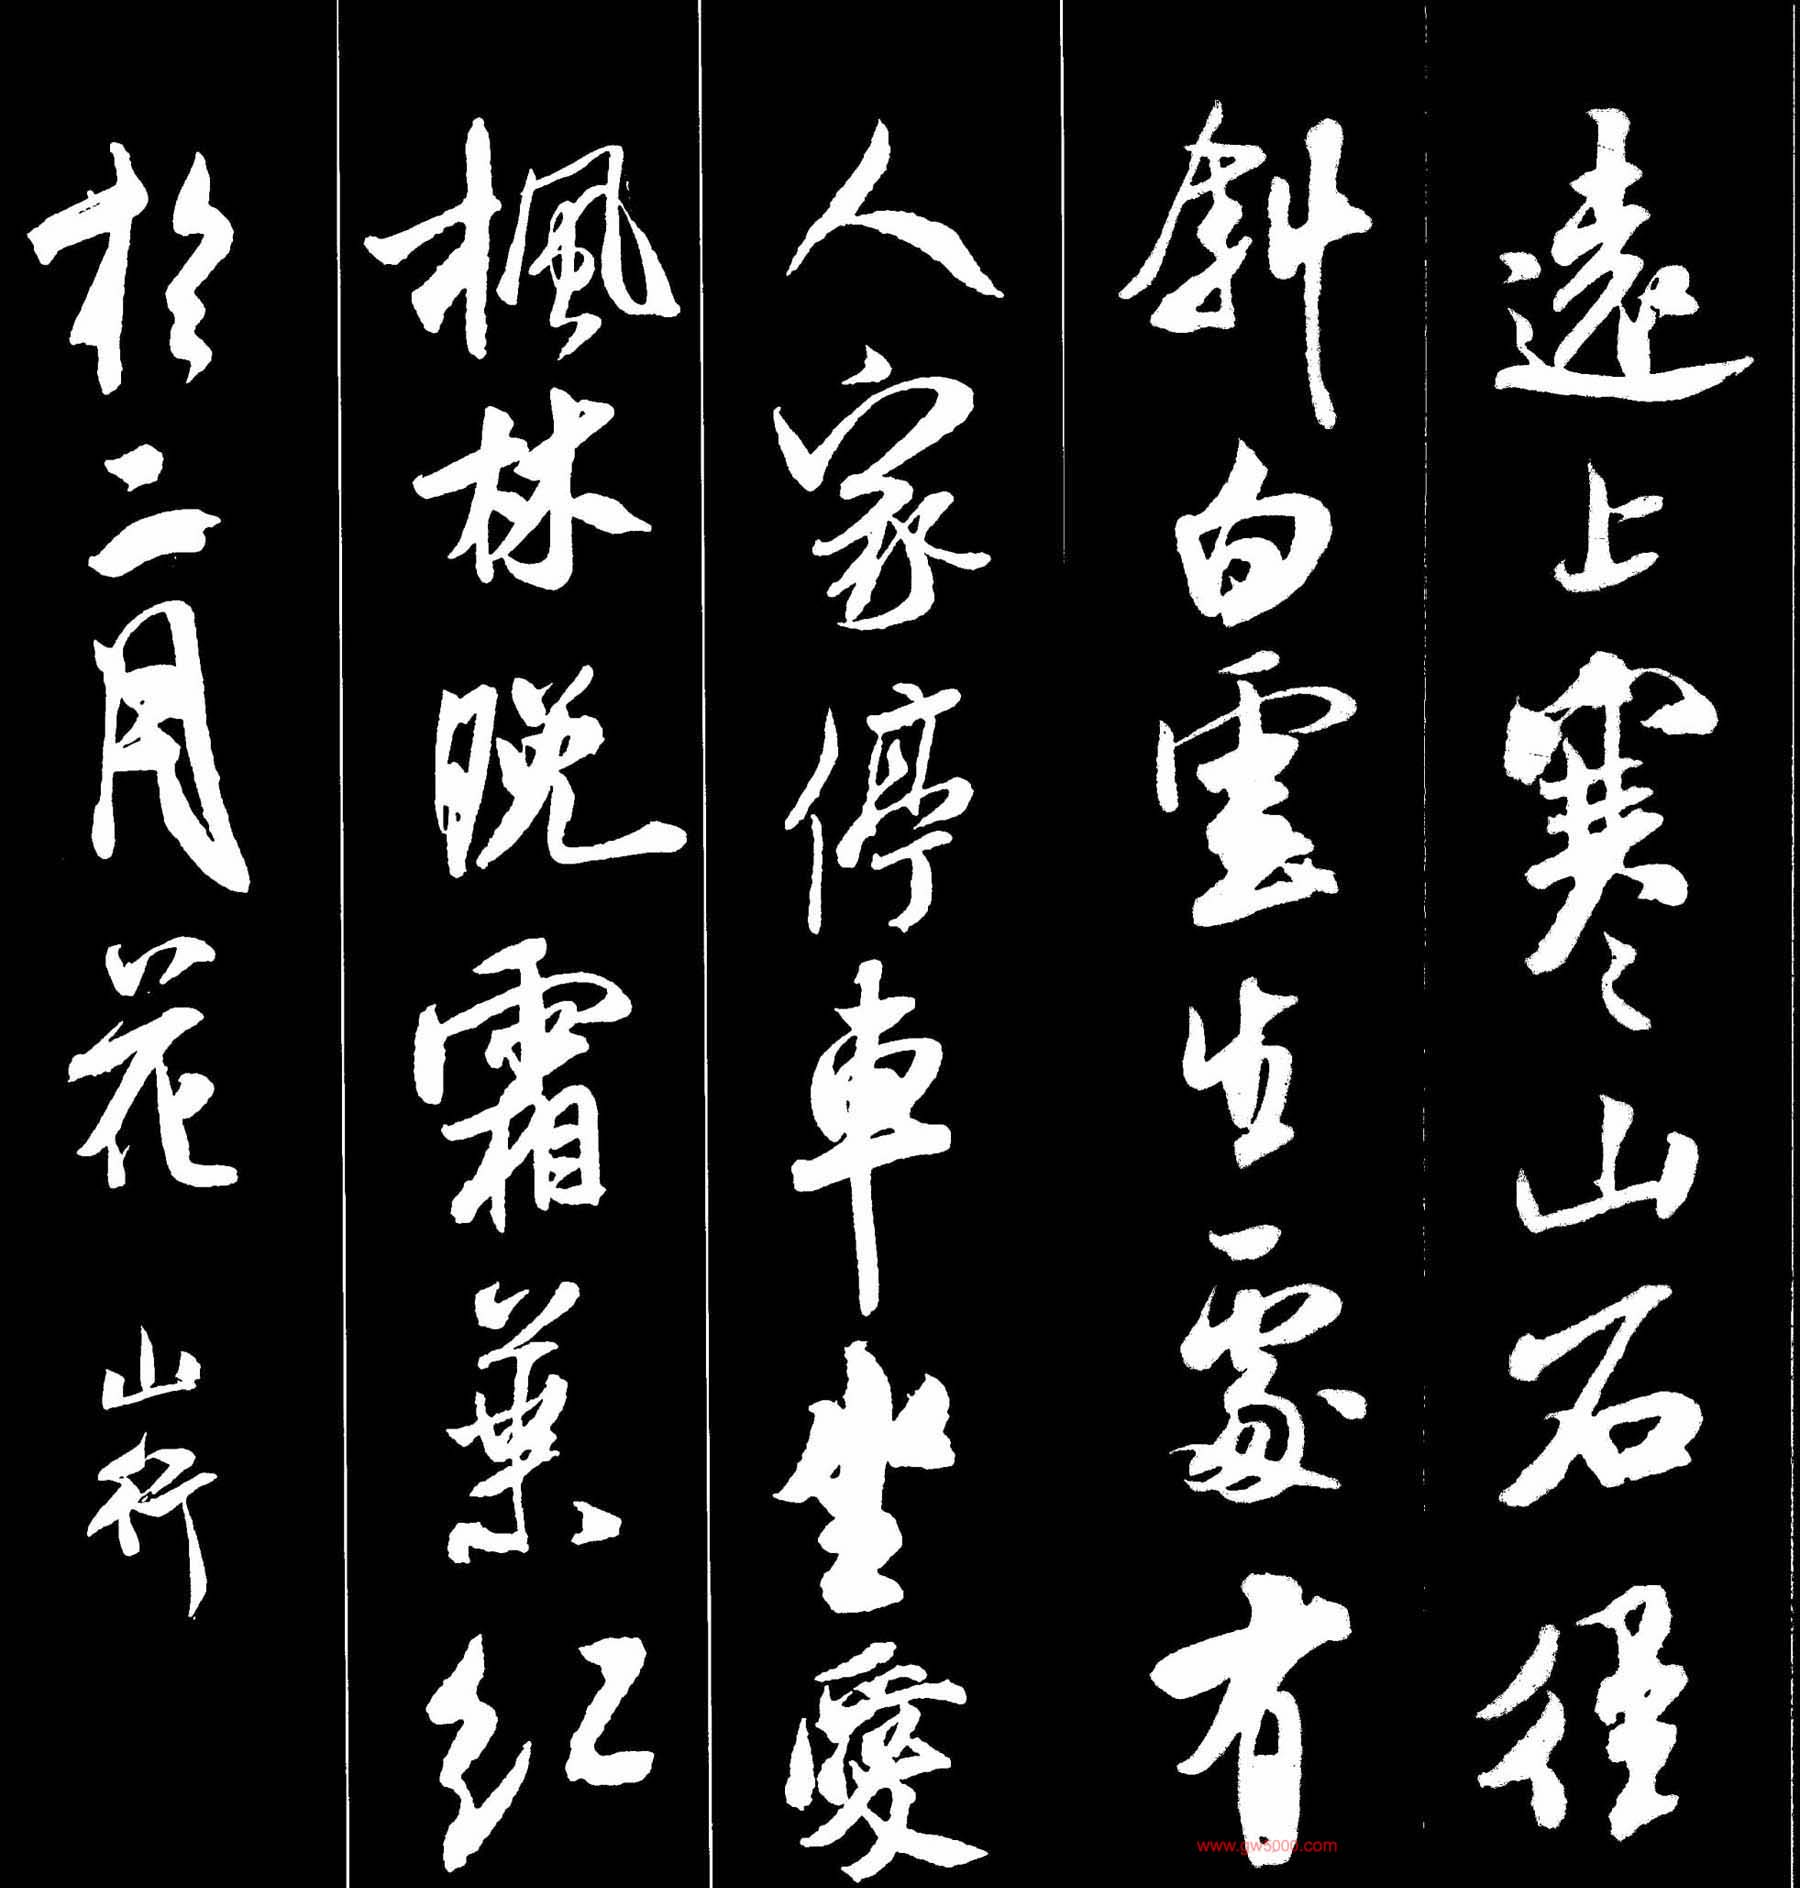 遠上寒山石徑
斜白雲生處有
人家停車坐愛
楓林晚霜葉紅
於二月花 山行
www.gw5000.com